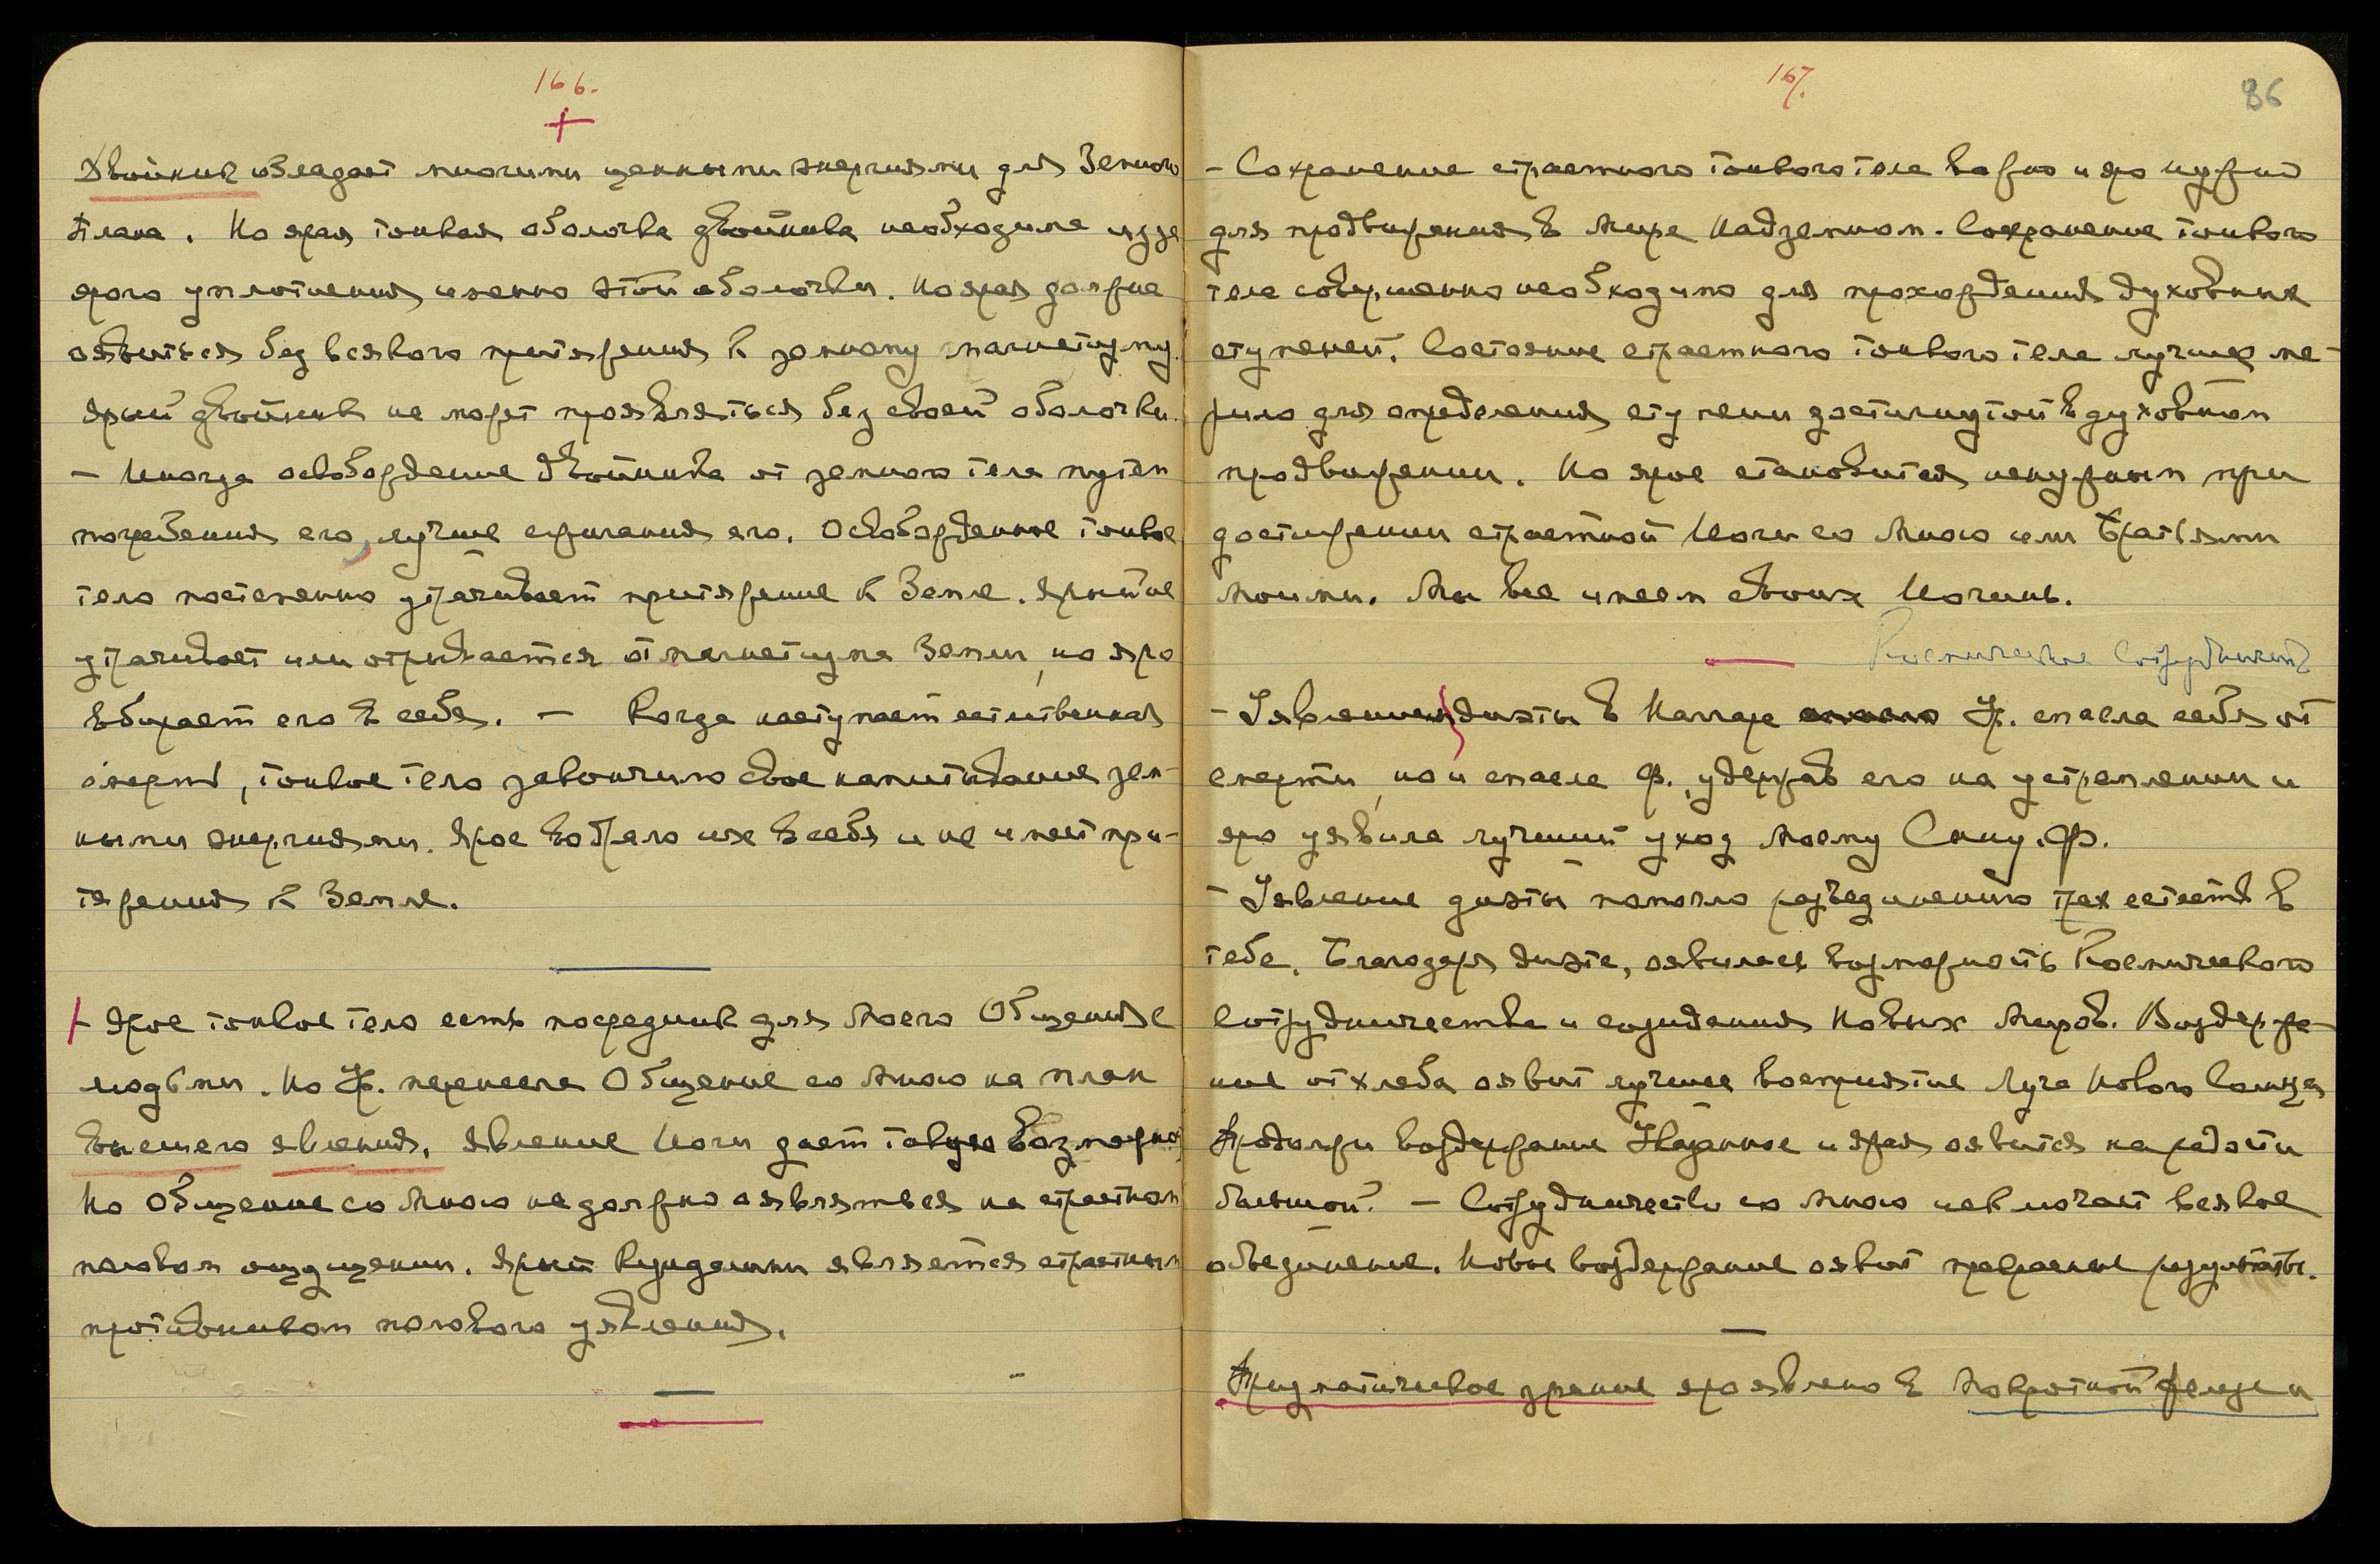 166.
+
Двойник обладает многими ценными энергиями для Земного
плана. Но ярая тонкая оболочка двойника необходима из-за
ярого уплотнения именно этой оболочки. Но ярая должна
оявиться без всякого притяжения к земному магнетизму.
Ярый двойник не может проявляться без своей оболочки.
— Иногда освобождение двойника от земного тела путем
погребения его, лучше сжигания его. Освобожденное тонкое
тело постепенно утрачивает притяжение к Земле. Ярый не
утрачивает или отрывается от магнетизма Земли, но яро
вбирает его в себя. — Когда наступает естественная
смерть, тонкое тело закончило свое напитывание зем-
ными энергиями. Ярое вобрало их в себя и не имеет при-
тяжения к Земле.
— Ярое тонкое тело есть посредник для Моего Общения с
людьми. Но Ур. перенесла Общение со Мною на план
высшего явления. Явление Йоги дает такую возможно
Но Общение со Мною не должно оявляться на страстном
половом ощущении. Ярый Кундалини является страстным
противником полового уявления.
167.
86
— Сохранение страстного тонкого тела важно и яро нужно
для продвижения в Мире Надземном. Сохранение тонкого
тела совершенно необходимо для прохождения духовных
ступеней. Состояние страстного тонкого тела лучшее ме-
рило для определения ступени достигнутой в духовном
продвижении. Но ярое становится ненужным при
достижении страстной Йоги со Мною или Братьями
Моими. Мы все имеем своих Йогинь.
Космическое Сотрудничество
— Уявление диэты в Наггаре Ур. спасла себя от
смерти, но и спасла Ф., удержав его на устремлении и
яро уявила лучший уход Моему Сыну. Ф.
— Уявление диэты помогло разъединению трех естеств в
тебе. Благодаря диэте, оявилась возможность Космического
Сотрудничества и созидания Новых Миров. Воздержа-
ние от хлеба оявит лучшее восприятие Луча Нового Солнца
Продолжи воздержание Указанное и ярая оявится на радости
большой. — Сотрудничество со Мною исключает всякое
объединение. Новое воздержание оявит прекрасные результаты.
Призматическое зрение яро явлено в Мокротной железе и